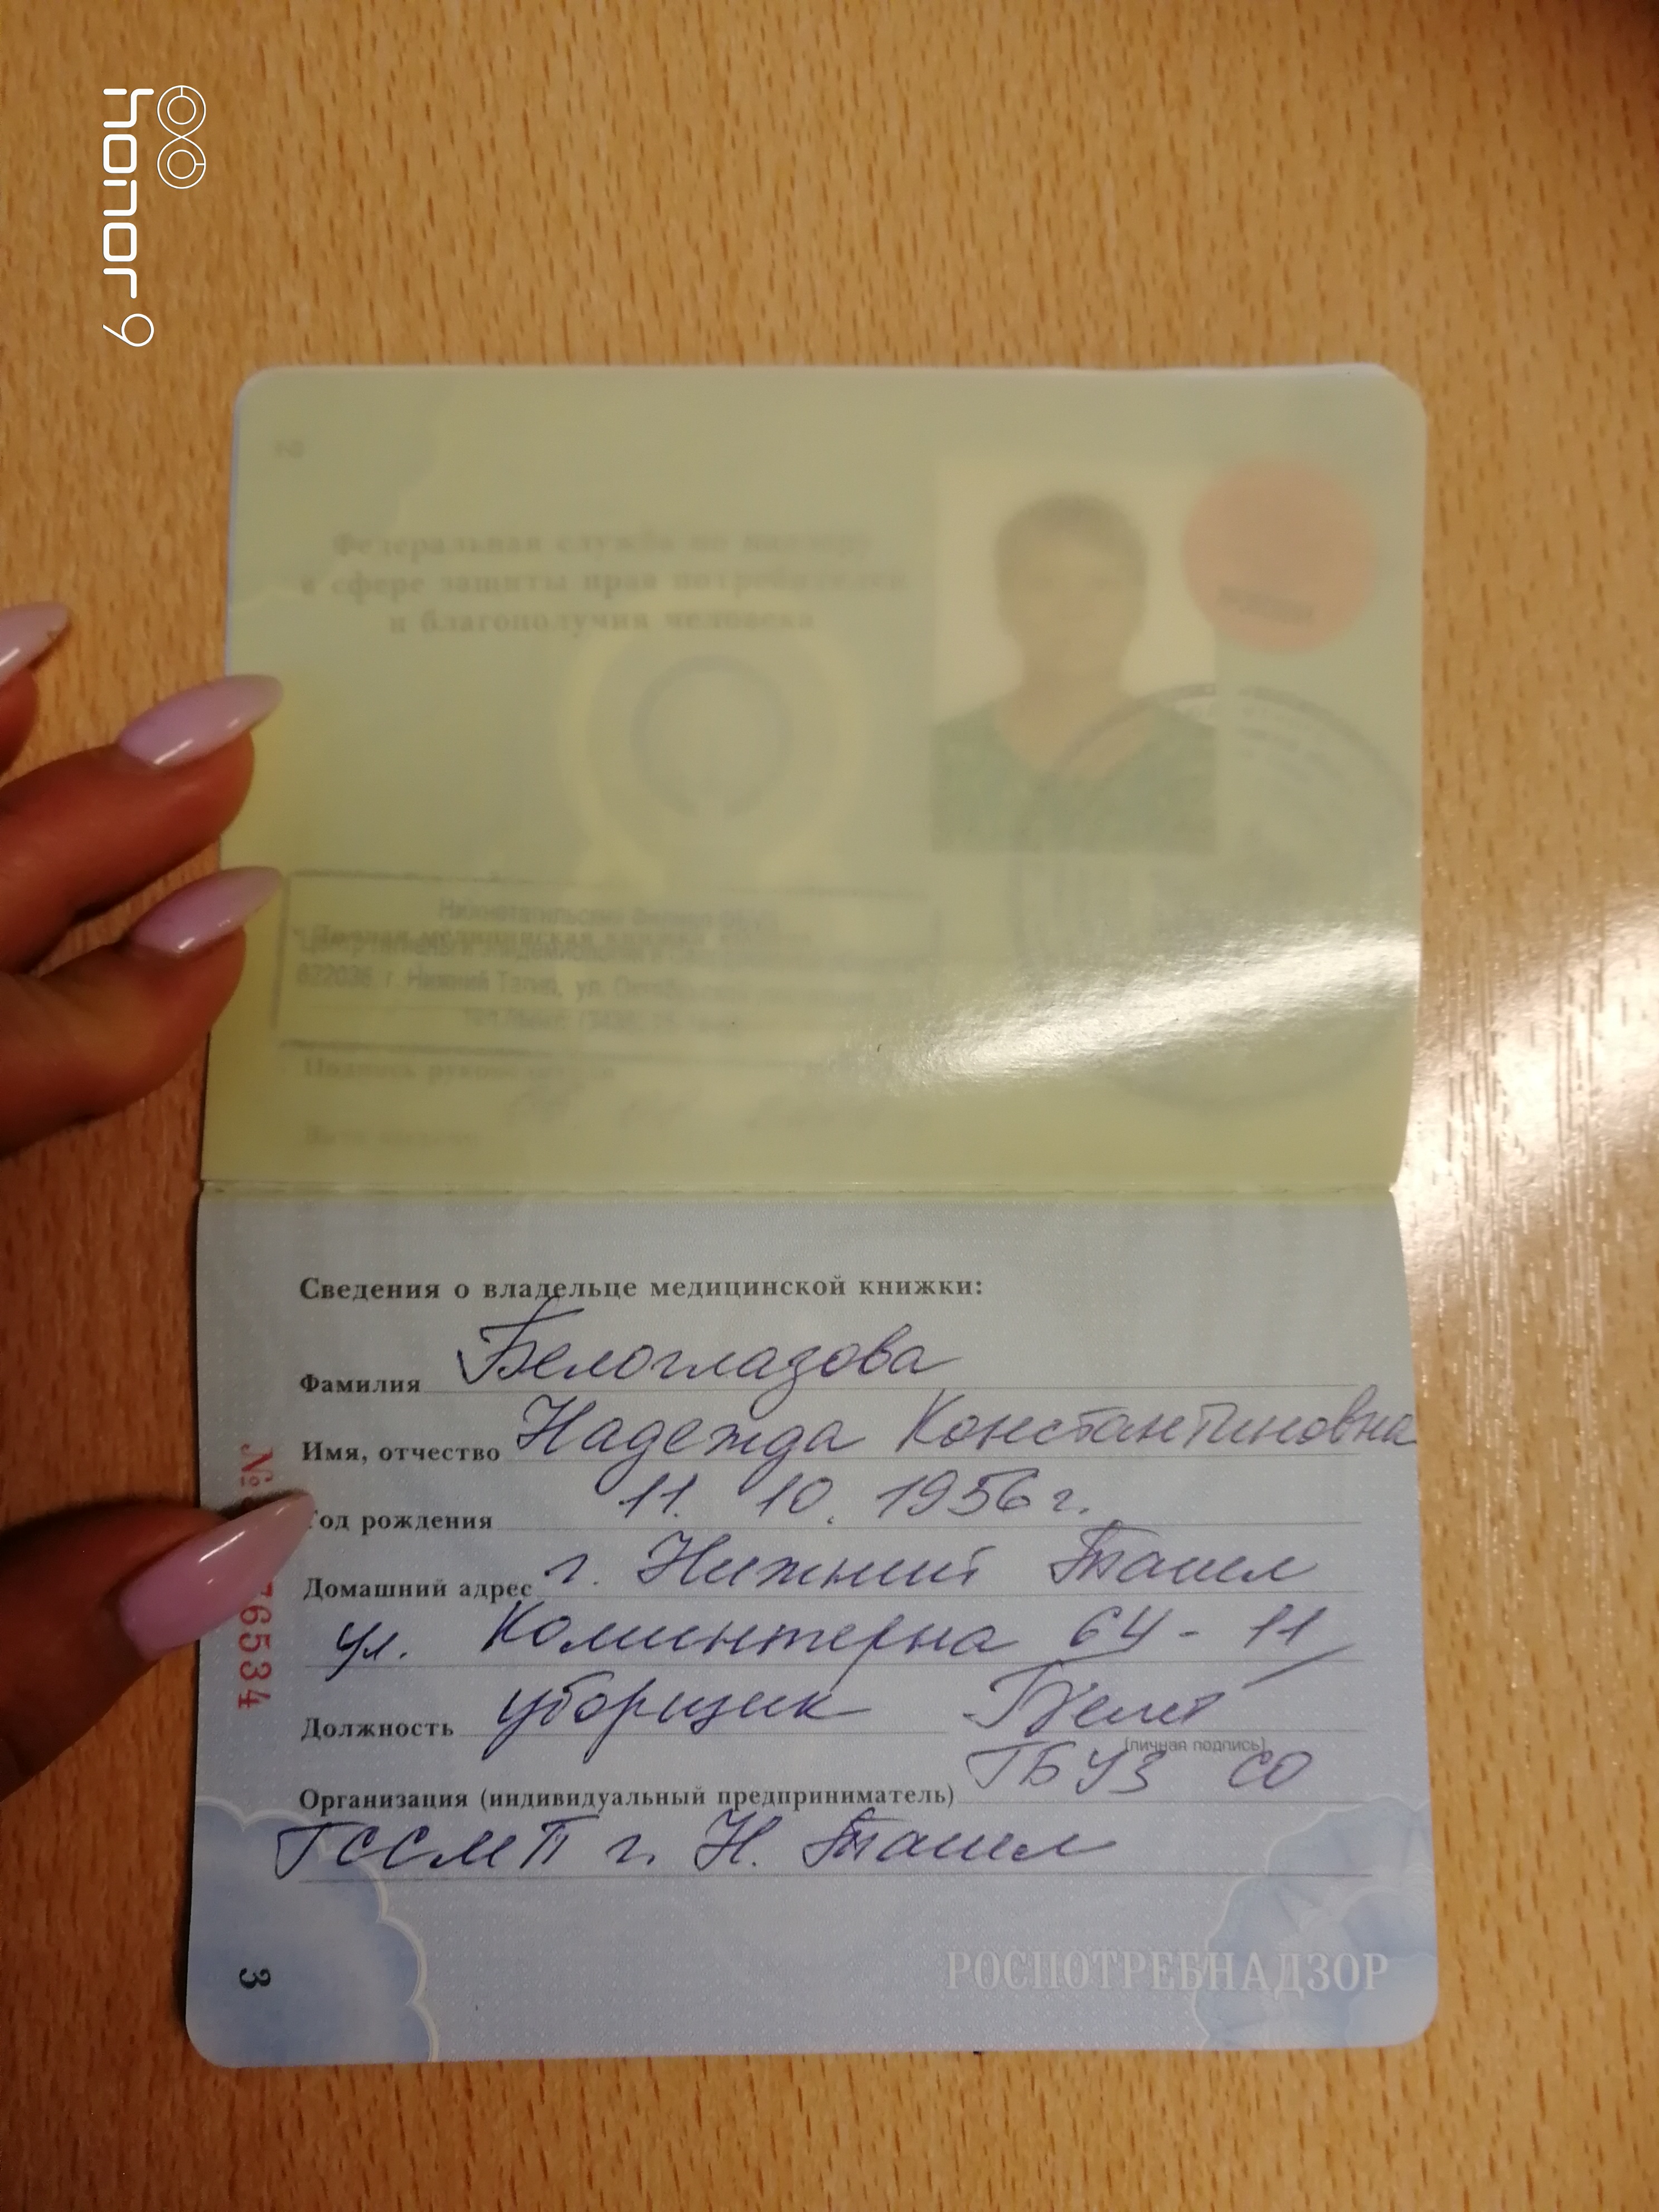 honor 9
Федеральная служба по надзору
в сфере защиты прав потребителей
и благополучия человека
Личная медицинская книжка
622036 г. Нижний Тагил, ул.
Подпись
Сведения о владельце медицинской книжки:
Фамилия Белоглазова
Имя, отчество Надежда Константиновна
Год рождения 11. 10. 1956 г.
Домашний адрес г. Нижний Тагил
ул. Коминтерна 64 - 11
Должность уборщик
(личная подпись)
Организация (индивидуальный предприниматель) ГБУЗ СО
ГССМП г. Н. Тагил
№ 76534
3
РОСПОТРЕБНАДЗОР